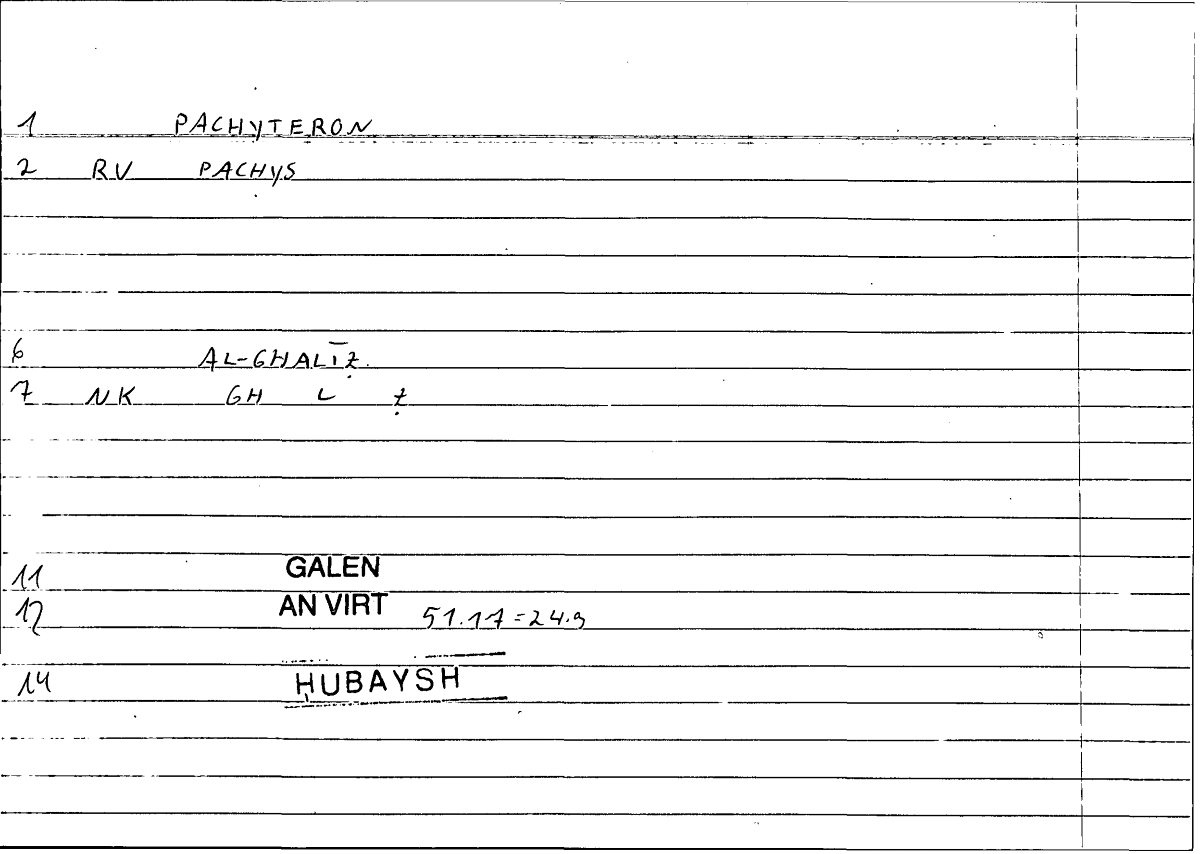 1 PACHYTERON
2 RV PACHYS
6 AL-GHALĪẒ
7 NK GH L Ẓ
11 GALEN
12 AN VIRT 51.17=24.9
14 HUBAYSH